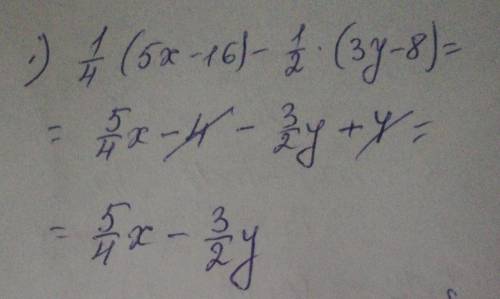 1) 1/4 (5x-16) - 1/2 · (3y-8) =
= 5/4 x - 4 - 3/2 y + 4 =
= 5/4 x - 3/2 y